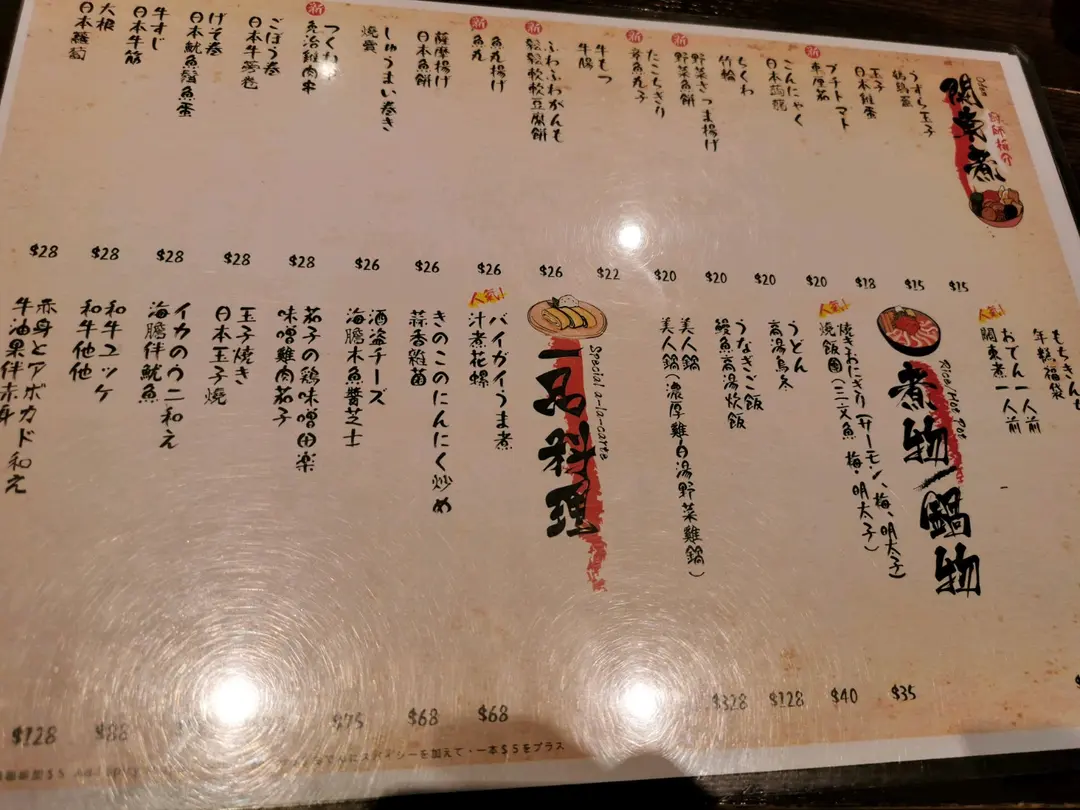 Oden
関東煮
廚師推介
うずら玉子
鵪鶉蛋
$15
玉子
日本雞蛋
$15
新
プチトマト
車厘茄
$18
こんにゃく
日本蒟蒻
$20
ちくわ
竹輪
$20
新
野菜さつま揚げ
野菜魚餅
$20
新
たこちぎり
章魚丸子
$20
牛もつ
牛腸
$22
新
ふわふわがんも
鬆鬆軟軟豆腐餅
$26
新
魚丸揚げ
魚丸
$26
薩摩揚げ
日本魚餅
$26
しゅうまい巻き
燒賣
$26
新
つくね
免治雞肉串
$28
ごぼう巻
日本牛蒡卷
$28
げそ巻
日本魷魚鬚魚蛋
$28
牛すじ
日本牛筋
$28
大根
日本蘿蔔
$28
もちきんち
年糕福袋
人気!
おでん一人前
關東煮一人前
Rice/Hot Pot
煮物/鍋物
人気!
焼きおにぎり(サーモン、梅、明太子)
燒飯團(三文魚、梅、明太子)
$35
うどん
高湯烏冬
$40
うなぎご飯
鰻魚高湯炊飯
$128
美人鍋
美人鍋(濃厚雞白湯野菜雞鍋)
$328
Special a-la-carte
一品料理
人気!
バイガイうま煮
汁煮花螺
$68
きのこのにんにく炒め
蒜香雜菌
$68
酒盗チーズ
海膽木魚醬芝士
$75
茄子の鶏味噌田楽
味噌雞肉茄子
玉子焼き
日本玉子燒
イカのウニ和え
海膽伴魷魚
和牛ユッケ
和牛他他
$88
赤身とアボカド和え
牛油果伴赤身
$128
を加えて・一本$5をプラス